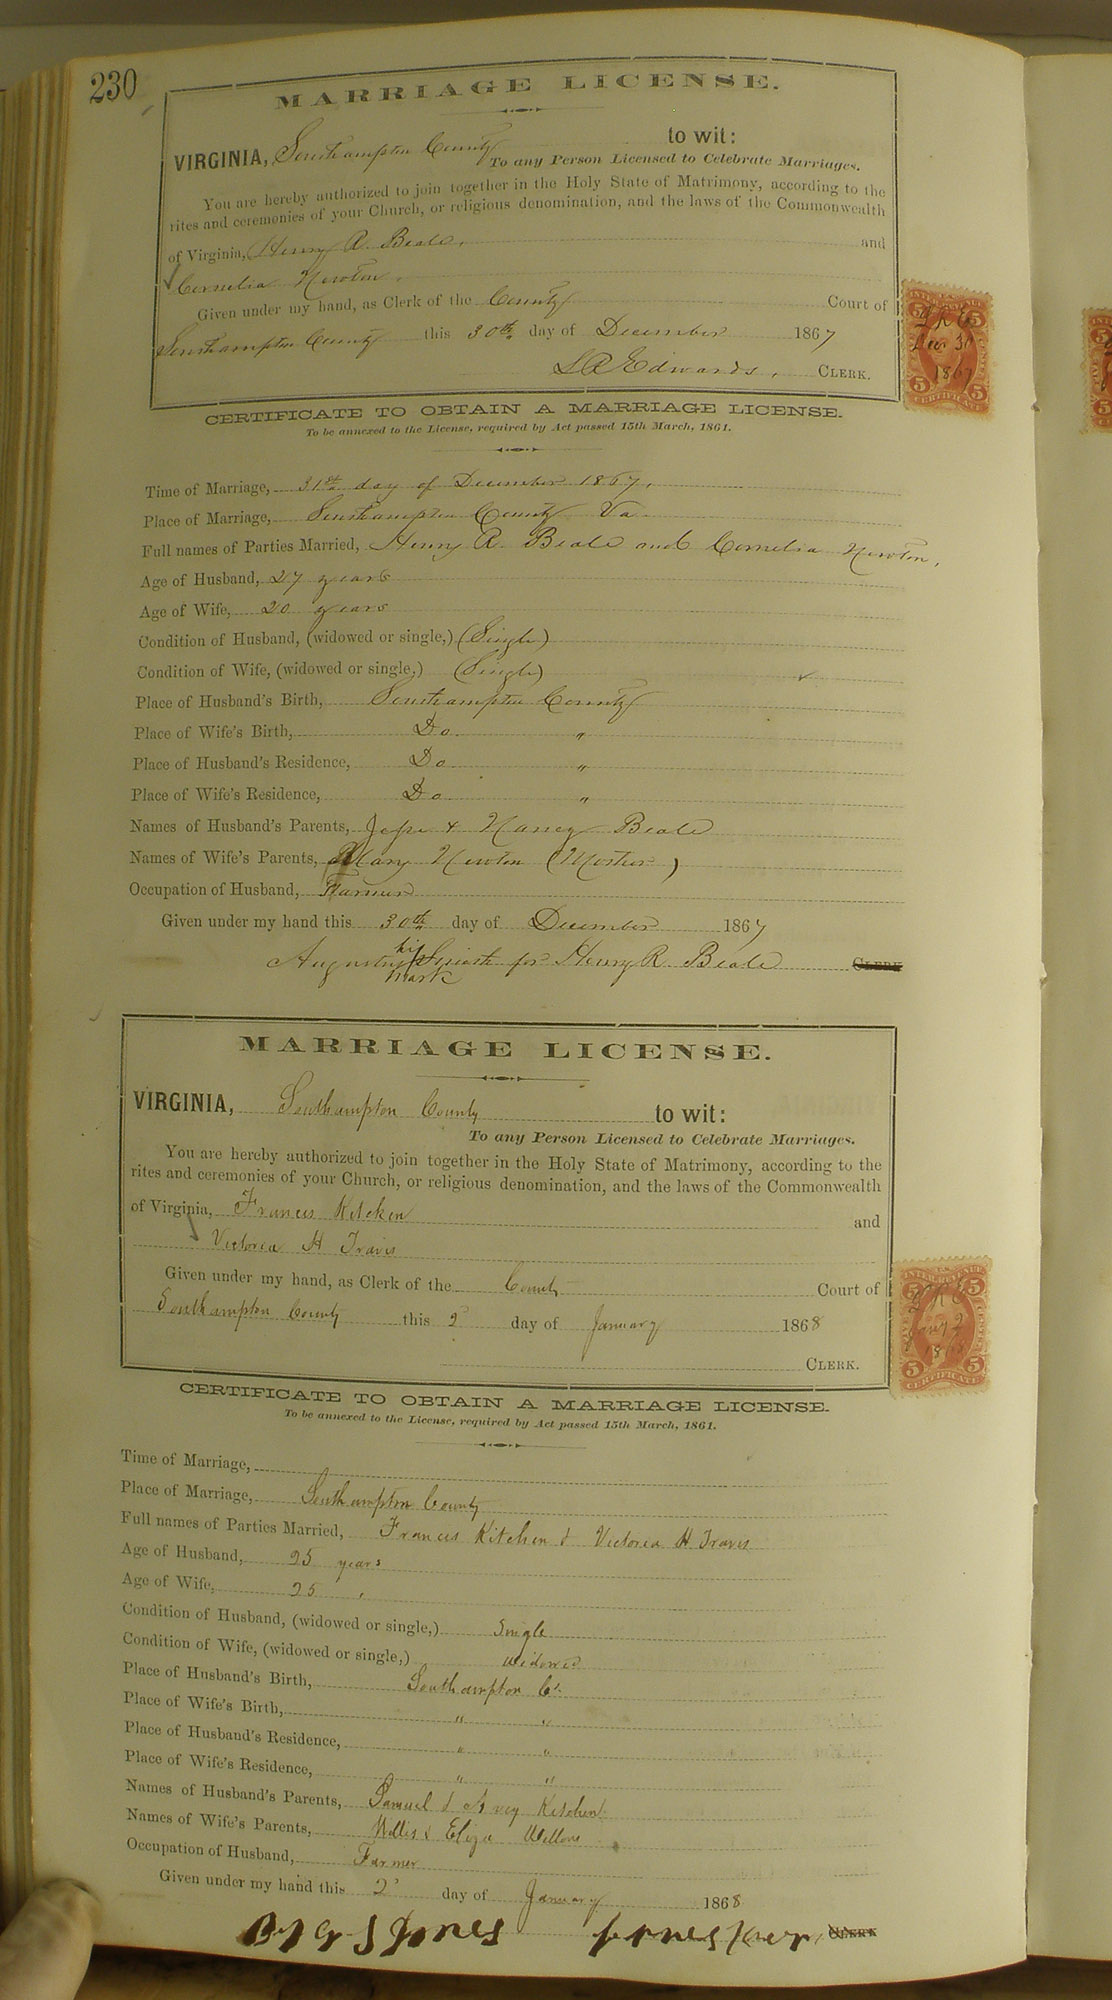 230
MARRIAGE LICENSE.
VIRGINIA, Southampton County to wit:
To any Person Licensed to Celebrate Marriages.
You are hereby authorized to join together in the Holy State of Matrimony, according to the
rites and ceremonies of your Church, or religious denomination, and the laws of the Commonwealth
of Virginia, Henry R. Beale, and
Cornelia Newton.
Given under my hand, as Clerk of the County Court of
Southampton County this 30th day of December 1867
LREdwards, CLERK.
LRE
Dec 30
1867
CERTIFICATE TO OBTAIN A MARRIAGE LICENSE.
To be annexed to the License, required by Act passed 15th March, 1861.
Time of Marriage, 31st day of December 1867.
Place of Marriage, Southampton County Va.
Full names of Parties Married, Henry R. Beale and Cornelia Newton,
Age of Husband, 27 years
Age of Wife, 20 years
Condition of Husband, (widowed or single,) (Single)
Condition of Wife, (widowed or single,) (Single)
Place of Husband's Birth, Southampton County
Place of Wife's Birth, Do. "
Place of Husband's Residence, Do "
Place of Wife's Residence, Do "
Names of Husband's Parents, Jesse & Nancy Beale
Names of Wife's Parents, Mary Newton (Mother)
Occupation of Husband, Farmer
Given under my hand this 30th day of December 1867
his
Augustus for Henry R. Beale CLERK
mark
MARRIAGE LICENSE.
VIRGINIA, Southampton County to wit:
To any Person Licensed to Celebrate Marriages.
You are hereby authorized to join together in the Holy State of Matrimony, according to the
rites and ceremonies of your Church, or religious denomination, and the laws of the Commonwealth
of Virginia, Francis Kitchen and
Victoria H Travis
Given under my hand, as Clerk of the County Court of
Southampton County this 2 day of January 1868
CLERK.
LRE
Jany 2
1868
CERTIFICATE TO OBTAIN A MARRIAGE LICENSE.
To be annexed to the License, required by Act passed 15th March, 1861.
Time of Marriage,
Place of Marriage, Southampton County
Full names of Parties Married, Francis Kitchen & Victoria H Travis
Age of Husband, 25 years
Age of Wife, 25 "
Condition of Husband, (widowed or single,) Single
Condition of Wife, (widowed or single,) Widowed
Place of Husband's Birth, Southampton Co.
Place of Wife's Birth, " "
Place of Husband's Residence, " "
Place of Wife's Residence, " "
Names of Husband's Parents, Samuel & Kitchen
Names of Wife's Parents, Willis & Eliza
Occupation of Husband, Farmer
Given under my hand this 2 day of January 1868
By G S Jones CLERK